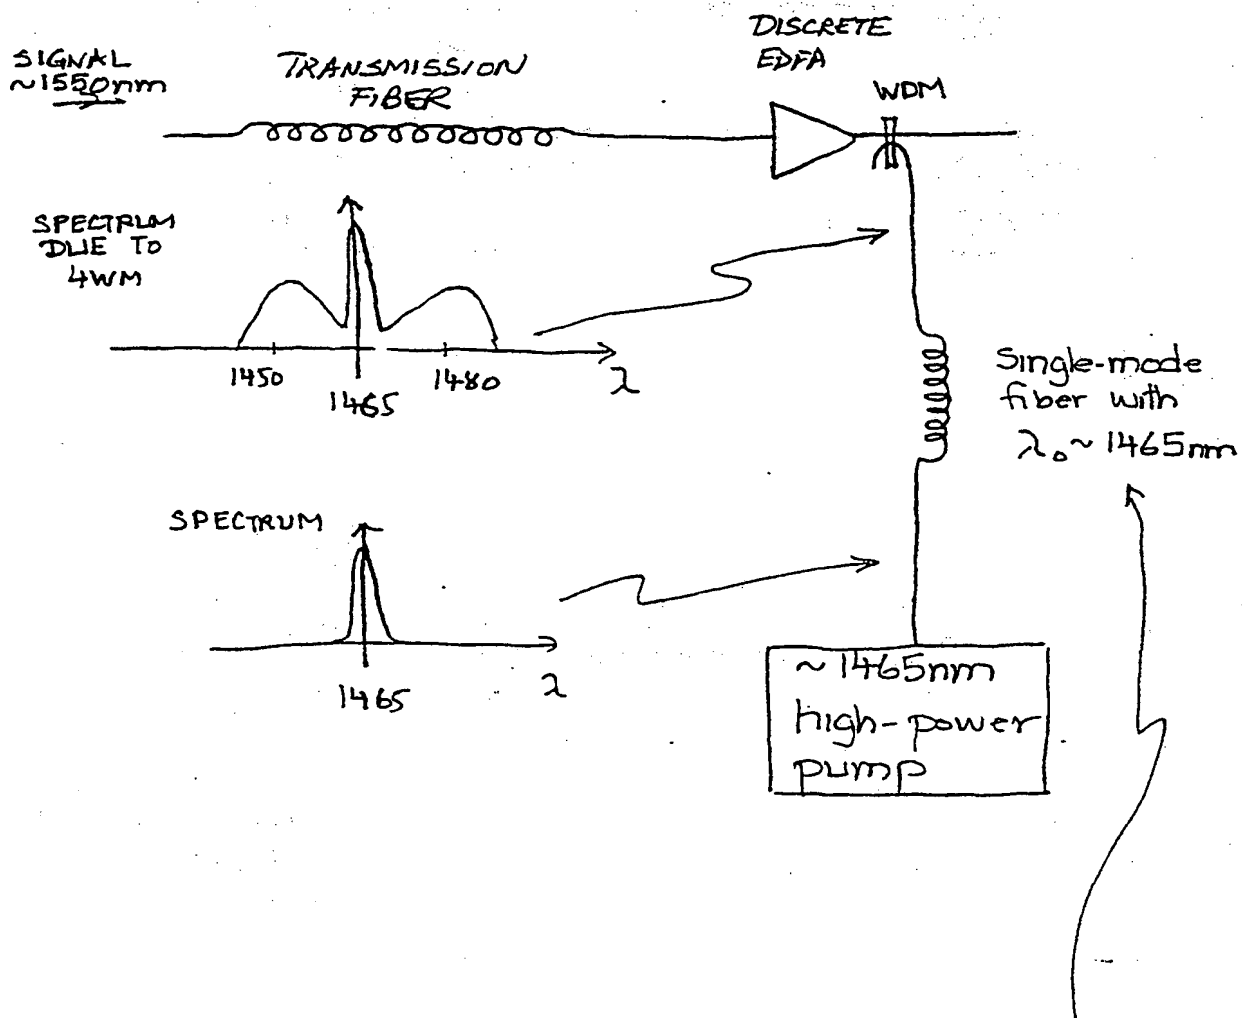 SIGNAL
~1550nm
TRANSMISSION
FIBER
DISCRETE
EDFA
WDM
SPECTRUM
DUE TO
4WM
1450
1465
1480
λ
Single-mode
fiber with
λ₀ ~ 1465nm
SPECTRUM
1465
λ
~ 1465nm
high-power
pump